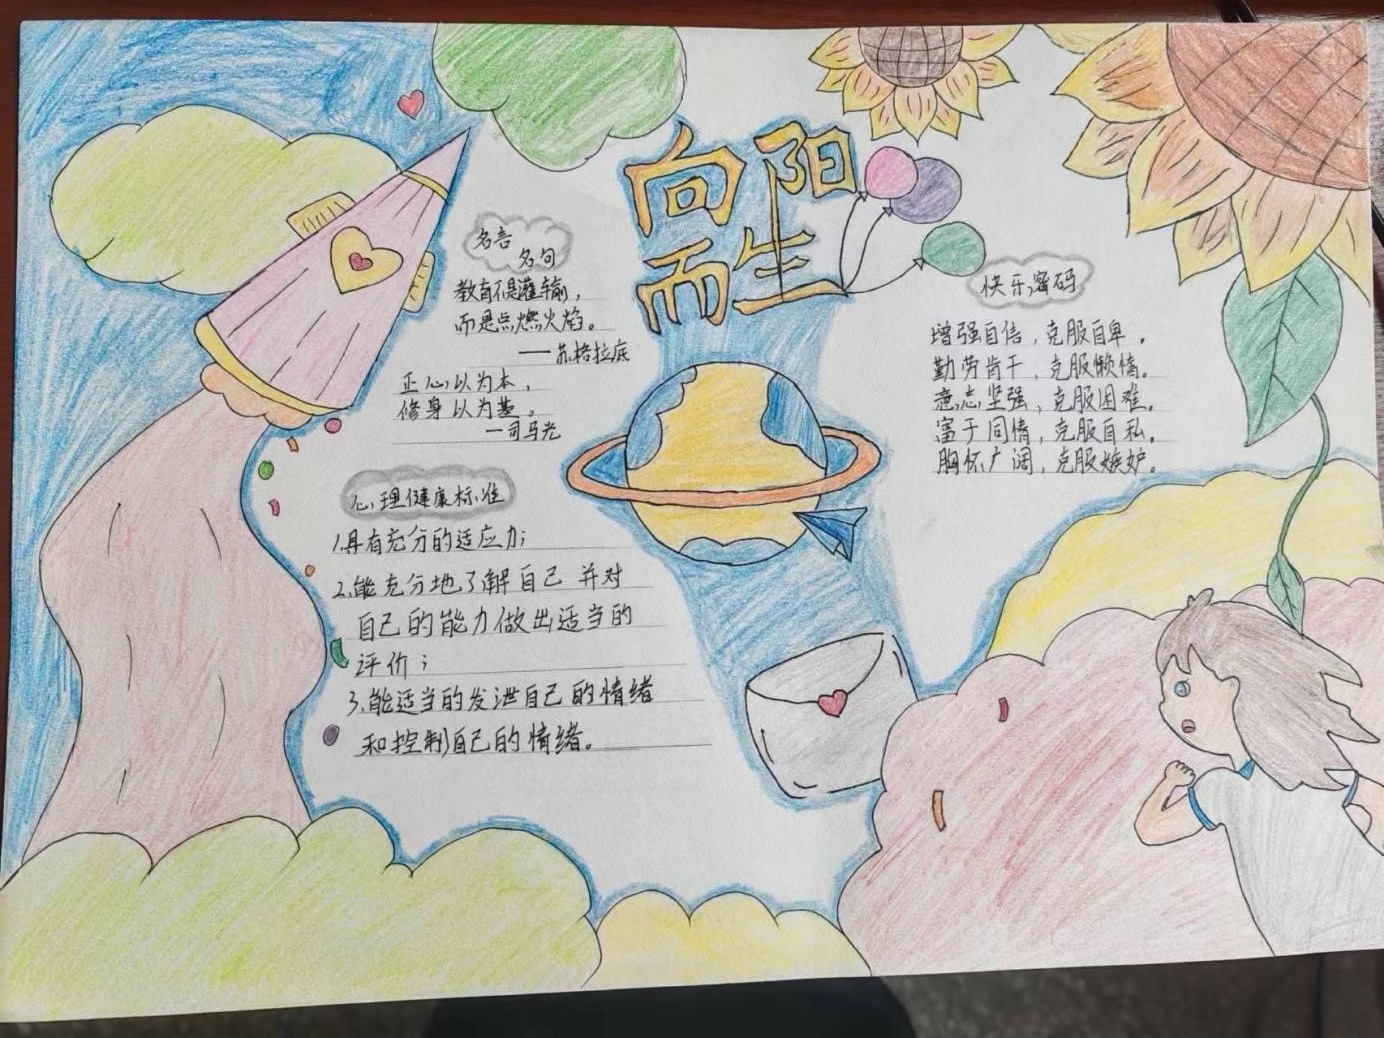 向阳
而生
名言
名句
教育不是灌输，
而是点燃火焰。
——苏格拉底
正心以为本，
修身以为基。
—司马光
心理健康标准
1.具有充分的适应力；
2.能充分地了解自己并对
自己的能力做出适当的
评价；
3.能适当的发泄自己的情绪
和控制自己的情绪。
快乐密码
增强自信，克服自卑。
勤劳肯干，克服懒惰。
意志坚强，克服困难。
富于同情，克服自私。
胸怀广阔，克服嫉妒。